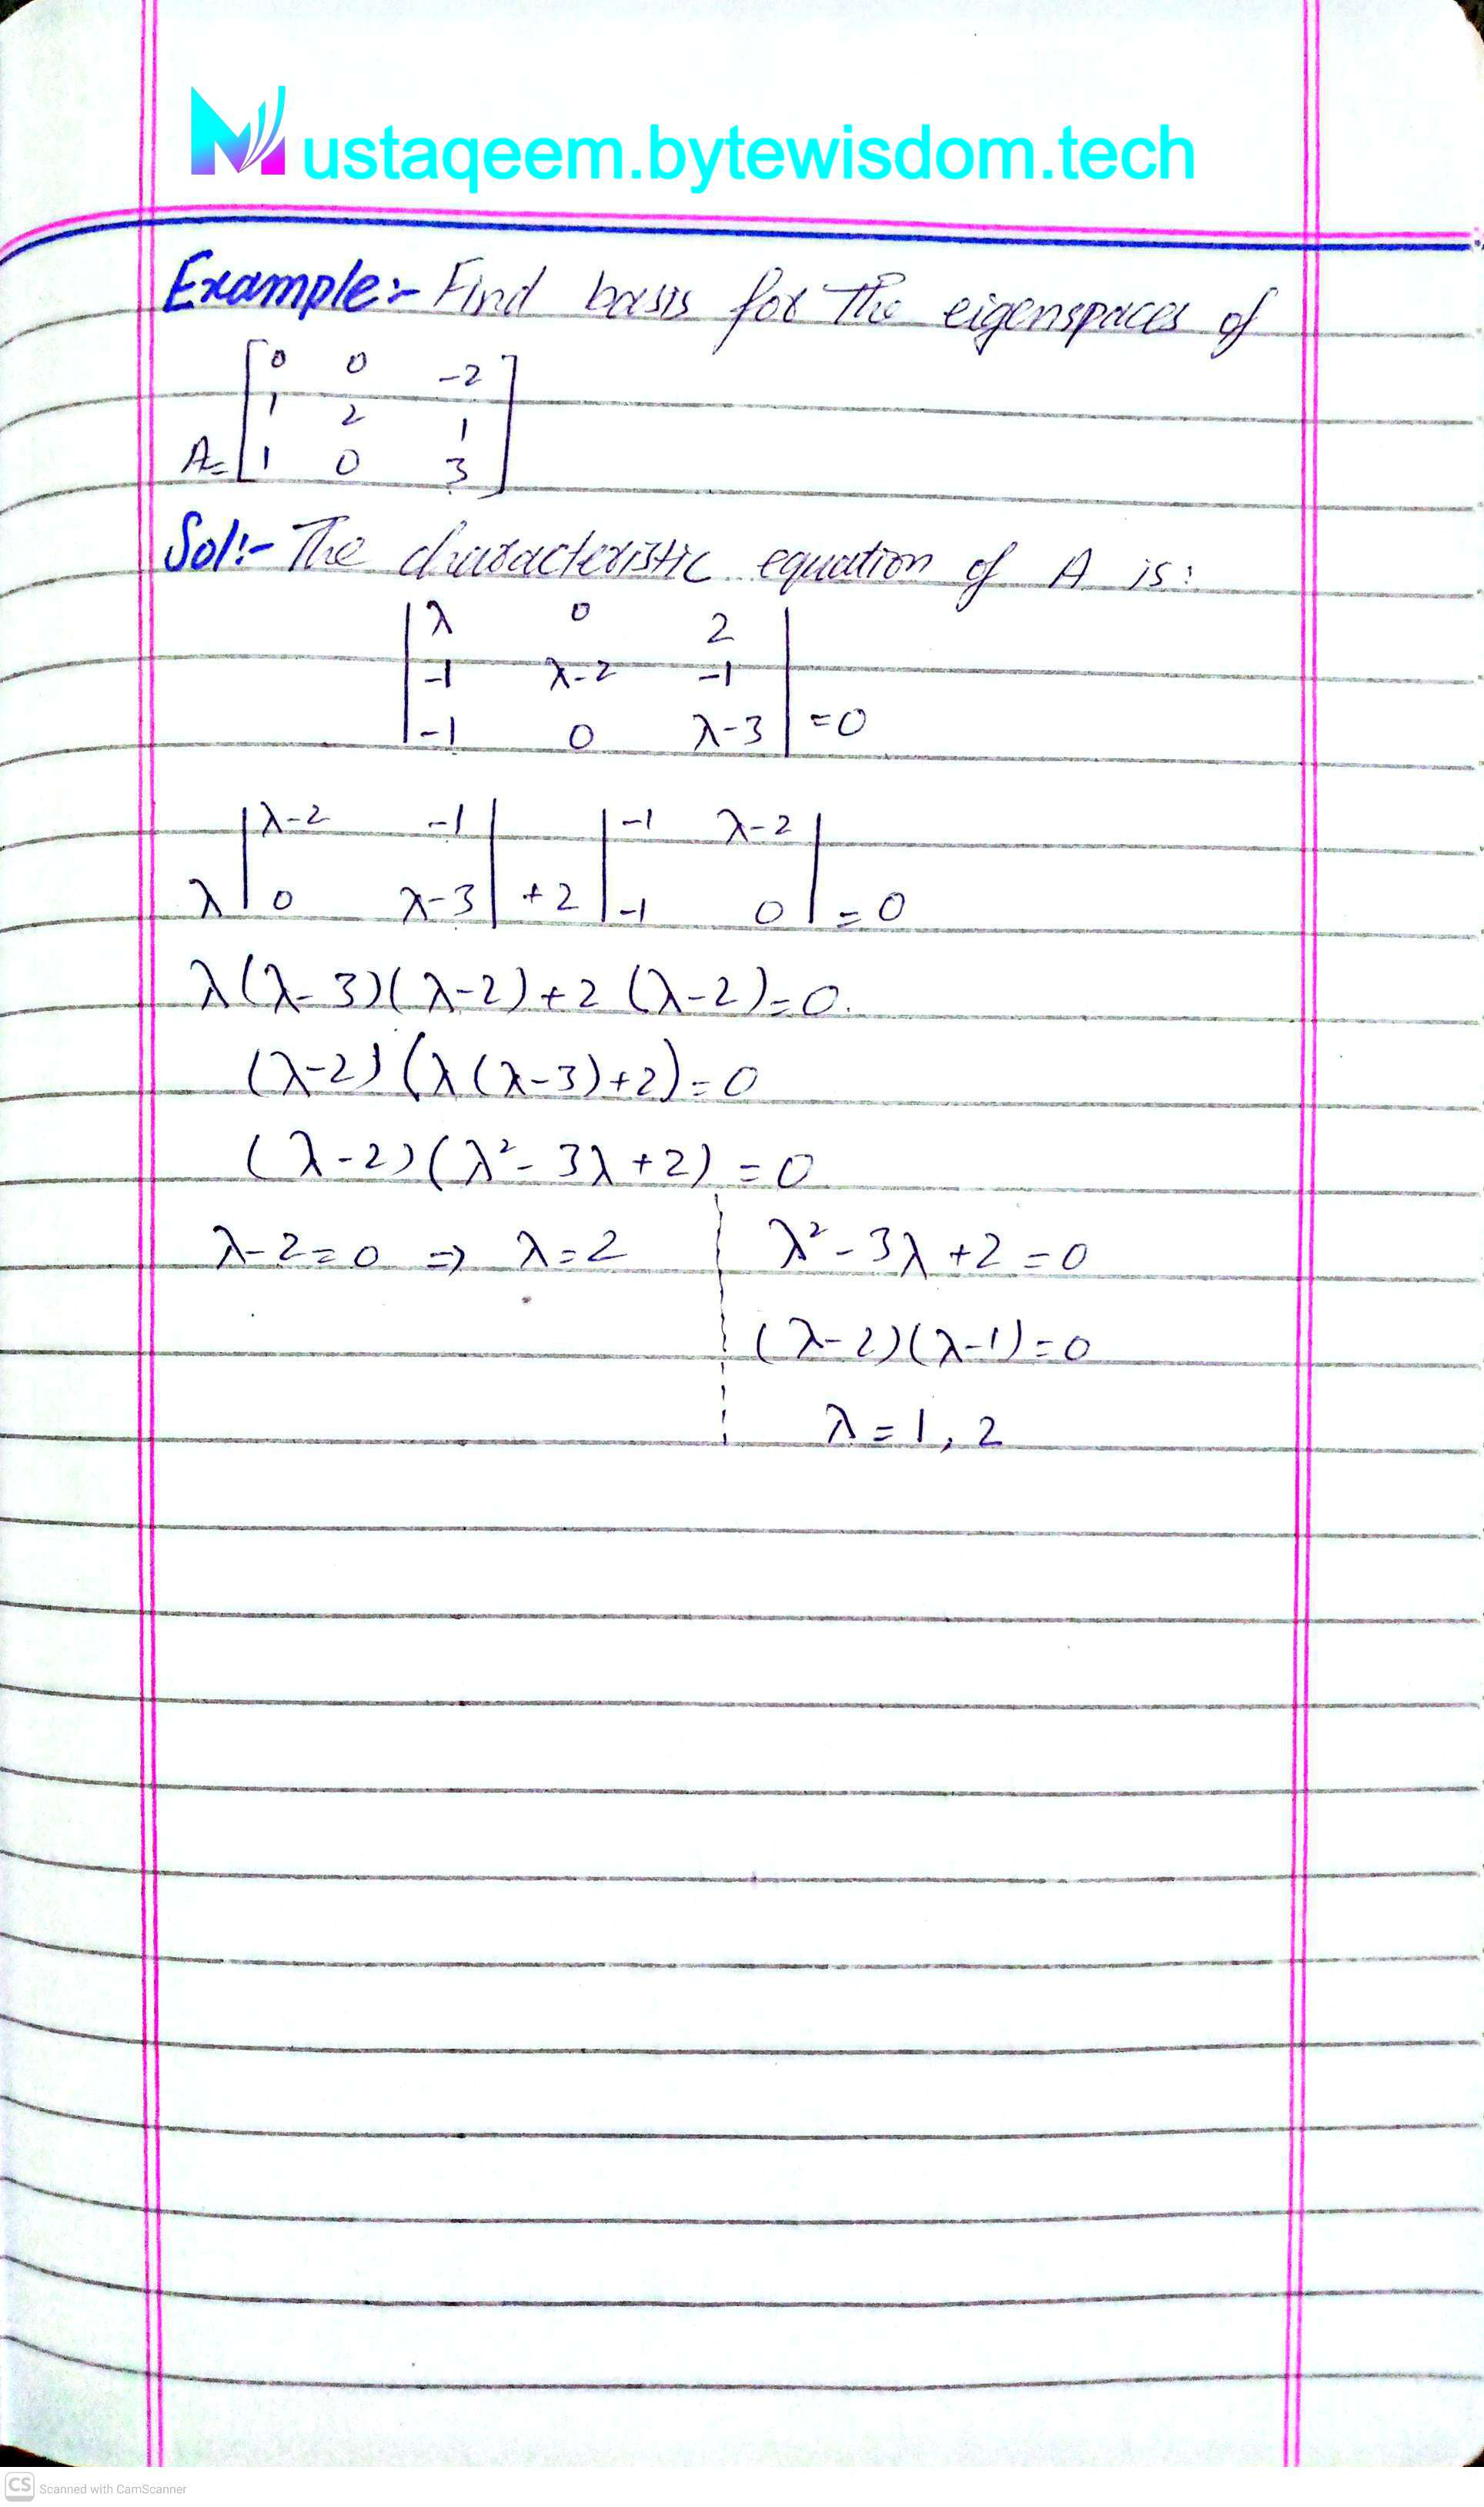 Mustaqeem.bytewisdom.tech
Example:- Find basis for the eigenspaces of
A = [0 0 -2
1 2 1
1 0 3]
Sol:- The characteristic equation of A is:
|λ 0 2|
|-1 λ-2 -1|
|-1 0 λ-3| = 0
λ |λ-2 -1; 0 λ-3| + 2 |-1 λ-2; -1 0| = 0
λ(λ-3)(λ-2)+2(λ-2)=0.
(λ-2)(λ(λ-3)+2)=0
(λ-2)(λ²-3λ+2)=0
λ-2=0 ⇒ λ=2 λ²-3λ+2=0
(λ-2)(λ-1)=0
λ=1, 2
CS Scanned with CamScanner